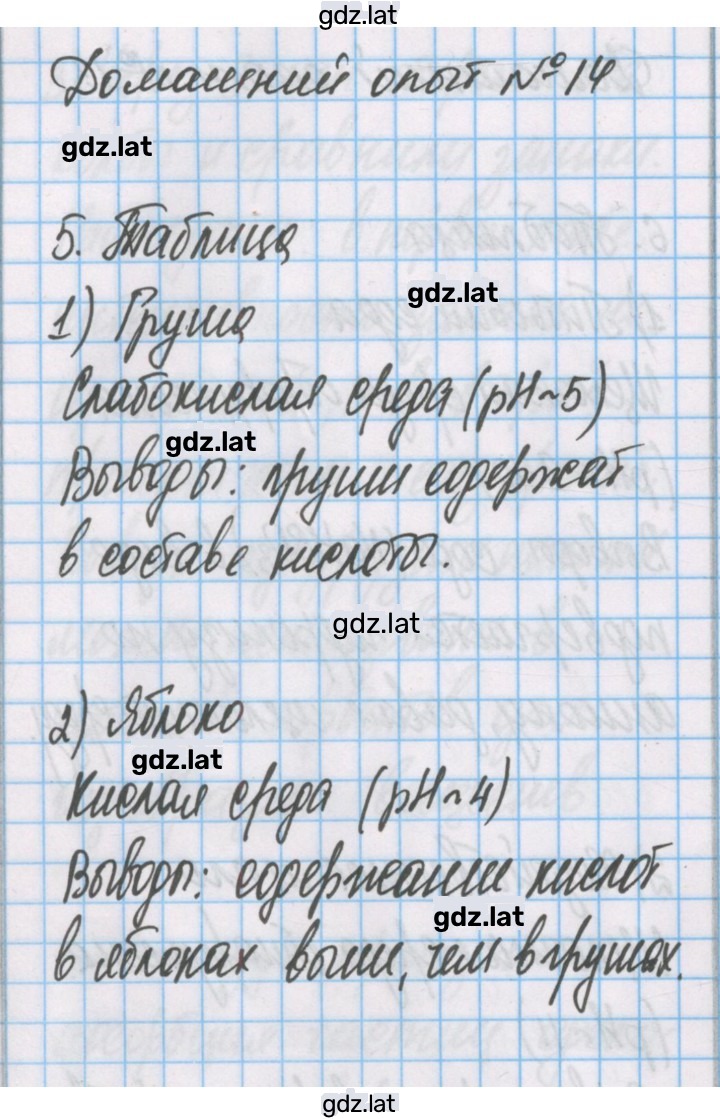 gdz.lat
Домашний опыт №14
gdz.lat
5. Таблица
gdz.lat
1) Груша
Слабокислая среда (pH~5)
gdz.lat
Выводы: груши содержат
в составе кислоты.
gdz.lat
2) Яблоко
gdz.lat
Кислая среда (pH~4)
Выводы: содержание кислот
gdz.lat
в яблоках выше, чем в грушах.
gdz.lat